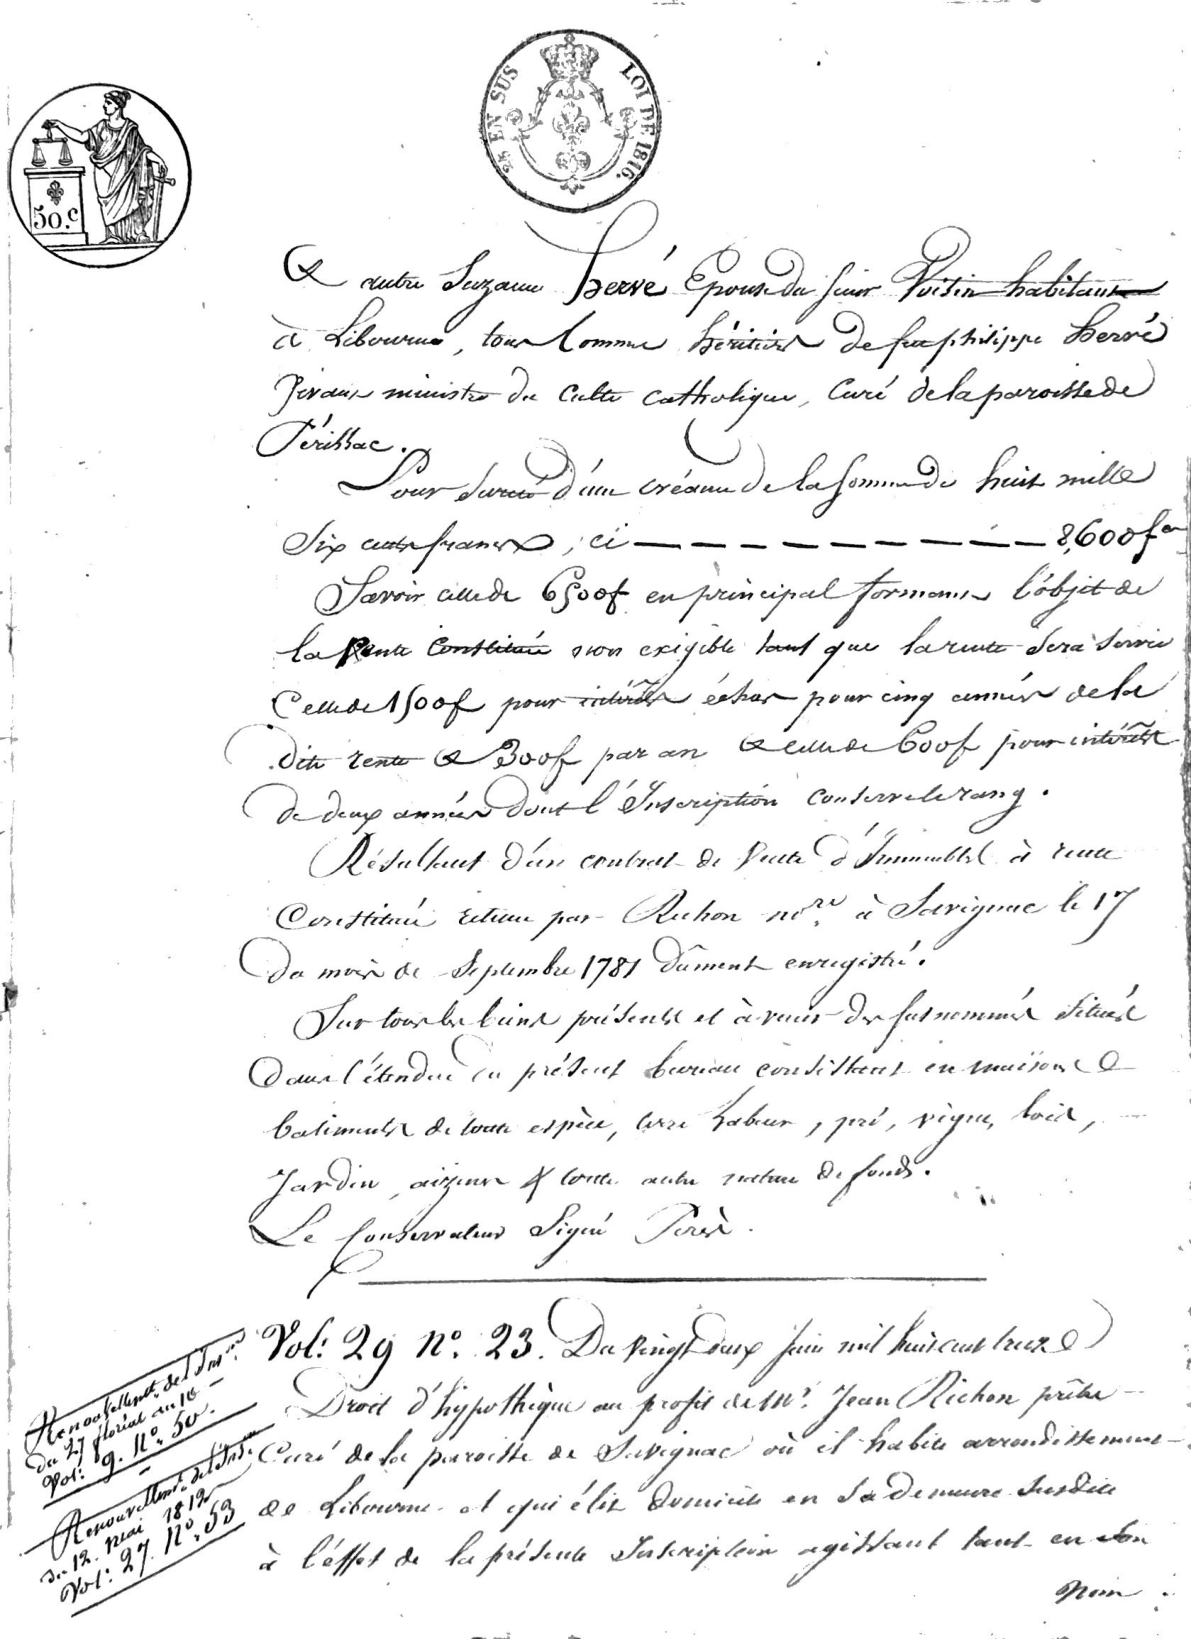 25 EN SUS LOI DE 1816.
50.c
& autre Suzanne Hervé Epouse du sieur Voisin habitant
à Libourne, tous comme héritiers de feu philippe Hervé
vivant ministre du culte catholique, curé de la paroisse de
Périssac.
Pour sureté d'une créance de la somme de huit mille
six cents francs, ci — — — — — — — — 8,600f
Savoir celle de 6500f en principal formant l'objet de
la Rente constituée non exigible tant que la rente sera servie
Celle de 1500f pour intérêts échus pour cinq années de la
dite rente de 300f par an & celle de 600f pour intérêts
de deux années dont l'Inscription conserve le rang.
Résultant d'un contrat de vente d'Immeubles à rente
Constituée retenu par Richon nore. à Savignac le 17
du mois de Septembre 1781 dûment enregistré.
Sur tous les biens présents et à venir des susnommés situés
dans l'étendue du présent bureau consistant en maisons &
batiments de toute espèce, terre labour, pré, vigne, bois,
Jardin, aizines & toute autre nature de fonds.
Le Conservateur Signé Perès.
Vol: 29 No. 23. Du vingt deux juin mil huit cent treize
Droit d'hypothèque au profit de Mr. Jean Richon prêtre
Curé de la paroisse de Savignac où il habite arrondissement
de Libourne et qui élit domicile en sa demeure susdite
à l'effet de la présente Inscription agissant tant en son
Nom
Renouvellemt. de l'Inson.
du 27 floréal an 10
Vol: 9. No. 50.
Renouvellemt. de l'Inson.
du 12. mai 1812
Vol: 27. No. 53